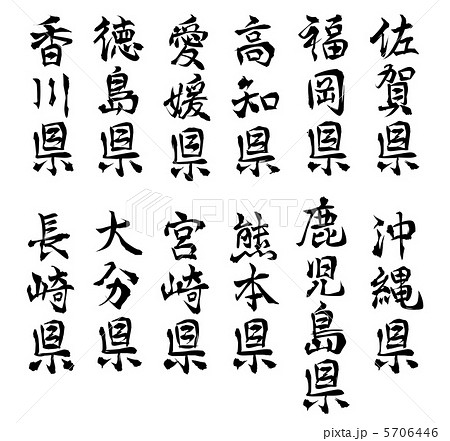 香川県
徳島県
愛媛県
高知県
福岡県
佐賀県
長崎県
大分県
宮崎県
熊本県
鹿児島県
沖縄県
PIXTA
pixta.jp - 5706446